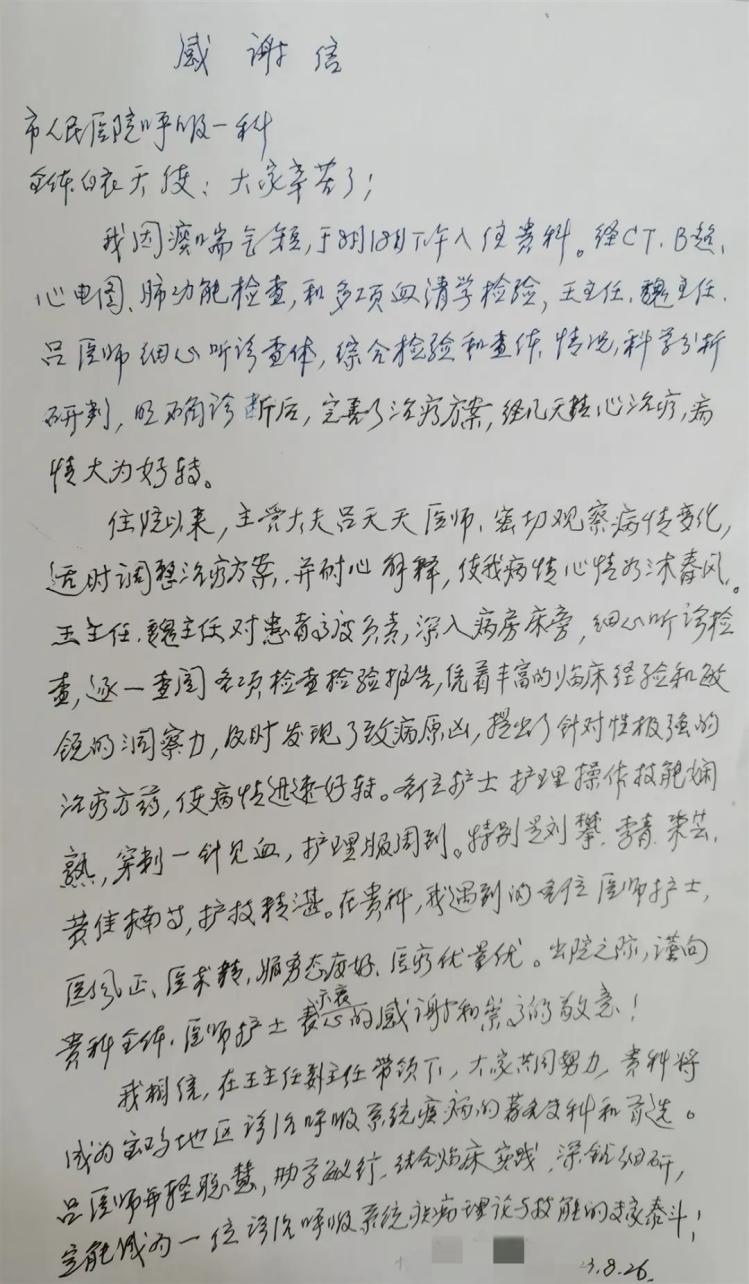 感谢信
市人民医院呼吸一科
全体白衣天使：大家辛苦了；
我因痰喘气短，于8月18日下午入住贵科。经CT、B超、
心电图、肺功能检查，和多项血清学检验，王主任、魏主任、
吕医师细心听诊查体，综合检验和查体、情况，科学分析
研判，明确诊断后，完善了治疗方案，经几天精心治疗，病
情大为好转。
住院以来，主管大夫吕天天医师、密切观察病情变化，
适时调整治疗方案，并耐心解释，使我病情心情如沐春风。
王主任、魏主任对患者高度负责，深入病房床旁，细心听诊检
查，逐一查阅各项检查检验报告，凭着丰富的临床经验和敏
锐的洞察力，及时发现了致病原凶，提出了针对性极强的
治疗方药，使病情迅速好转。各位护士护理操作技能娴
熟，穿刺一针见血，护理服周到。特别是刘攀、李青、来芸、
黄佳楠等，护技精湛。在贵科，我遇到的各位医师护士，
医风正、医术精，服务态度好、医疗优量优。出院之际，谨向
贵科全体、医师护士表示衷心的感谢和崇高的敬意！
我相信，在王主任副主任带领下，大家共同努力，贵科将
成为宝鸡地区诊治呼吸系统疾病的著名专科和首选。
吕医师年轻聪慧，勤学敏行、结合临床实践、深钻细研，
定能成为一位诊治呼吸系统疾病理论与技能的专家泰斗！
3.8.26.